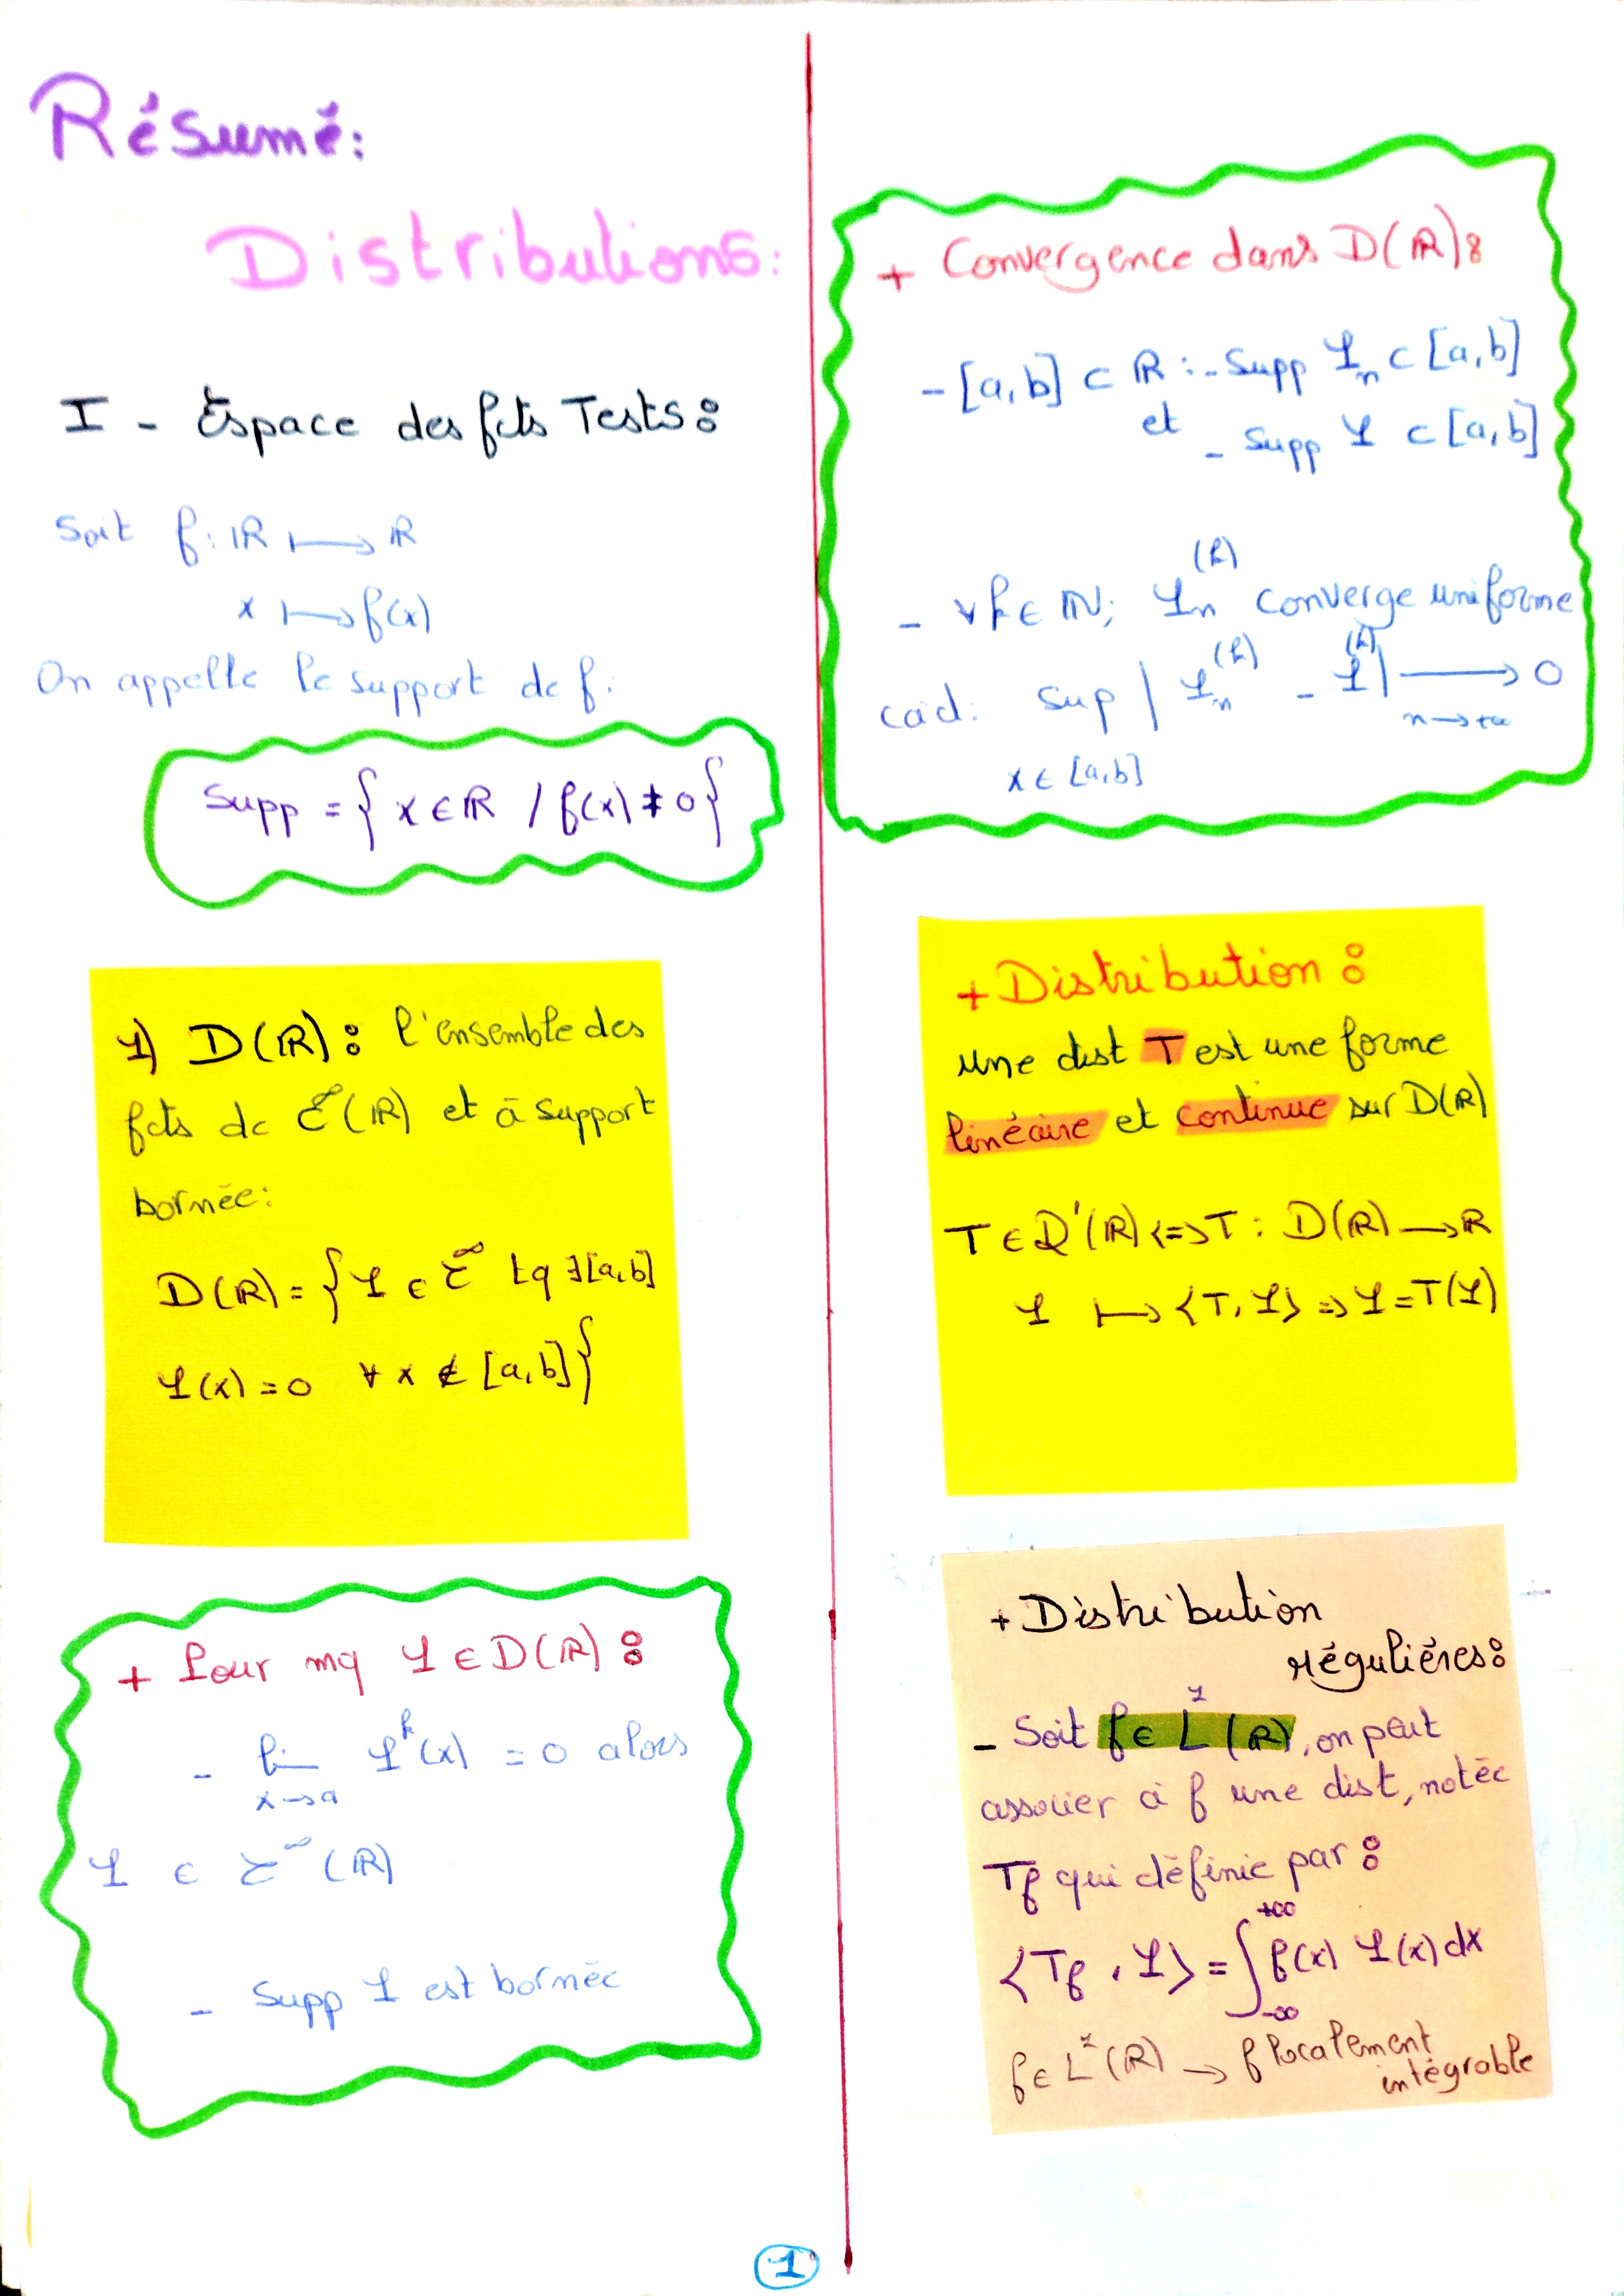 Résumé:
Distributions:
I - Espace des fcts Tests:
Soit f: ℝ ⟼ ℝ
x ⟼ f(x)
On appelle le support de f:
Supp = { x ∈ ℝ / f(x) ≠ 0 }
1) D(ℝ): l'ensemble des
fcts de C^∞(ℝ) et à support
bornée:
D(ℝ) = { φ ∈ C^∞ tq ∃ [a,b]
φ(x) = 0 ∀ x ∉ [a,b] }
+ Pour mq φ ∈ D(ℝ):
- lim φ^k(x) = 0 alors
x→a
φ ∈ C^∞(ℝ)
- Supp φ est bornée
+ Convergence dans D(ℝ):
- [a,b] ⊂ ℝ : - Supp φ_n ⊂ [a,b]
et - Supp φ ⊂ [a,b]
- ∀k ∈ ℕ; φ_n^(k) converge uniforme
càd: sup | φ_n^(k) - φ^(k) | ⟶ 0
x ∈ [a,b] n→+∞
+ Distribution:
une dist T est une forme
linéaire et continue sur D(ℝ)
T ∈ D'(ℝ) <=> T : D(ℝ) ⟶ ℝ
φ ⟼ <T, φ> => φ = T(φ)
+ Distribution
réguliéres:
- Soit f ∈ L^1(ℝ), on peut
associer à f une dist, notée
Tf qui définie par:
<Tf, φ> = ∫_{-∞}^{+∞} f(x) φ(x) dx
f ∈ L^1(ℝ) → f localement
intégrable
1